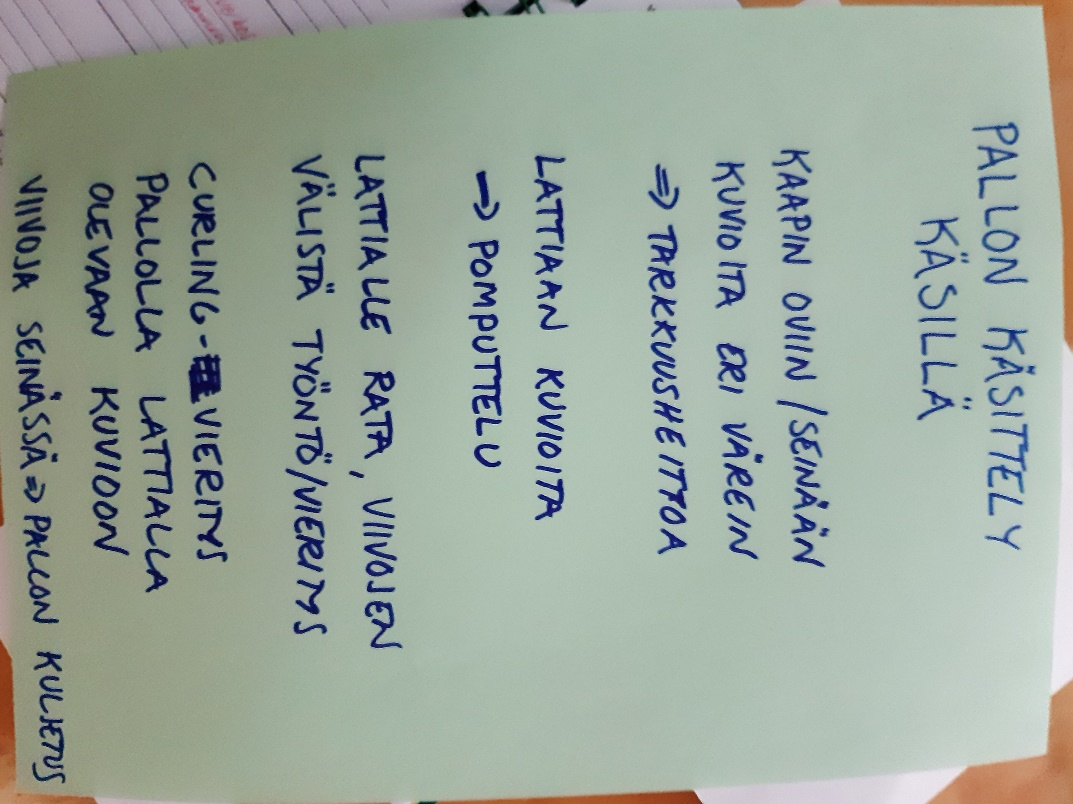 PALLON KÄSITTELY
KÄSILLÄ
KAAPIN OVIIN / SEINÄÄN
KUVIOITA ERI VÄREIN
⇒ TARKKUUSHEITTOA
LATTIAAN KUVIOITA
→ POMPUTTELU
LATTIALLE RATA, VIIVOJEN
VÄLISTÄ TYÖNTÖ/VIERITYS
CURLING-VIERITYS
PALLOLLA LATTIALLA
OLEVAAN KUVIOON
VIIVOJA SEINÄSSÄ ⇒ PALLON KULJETUS